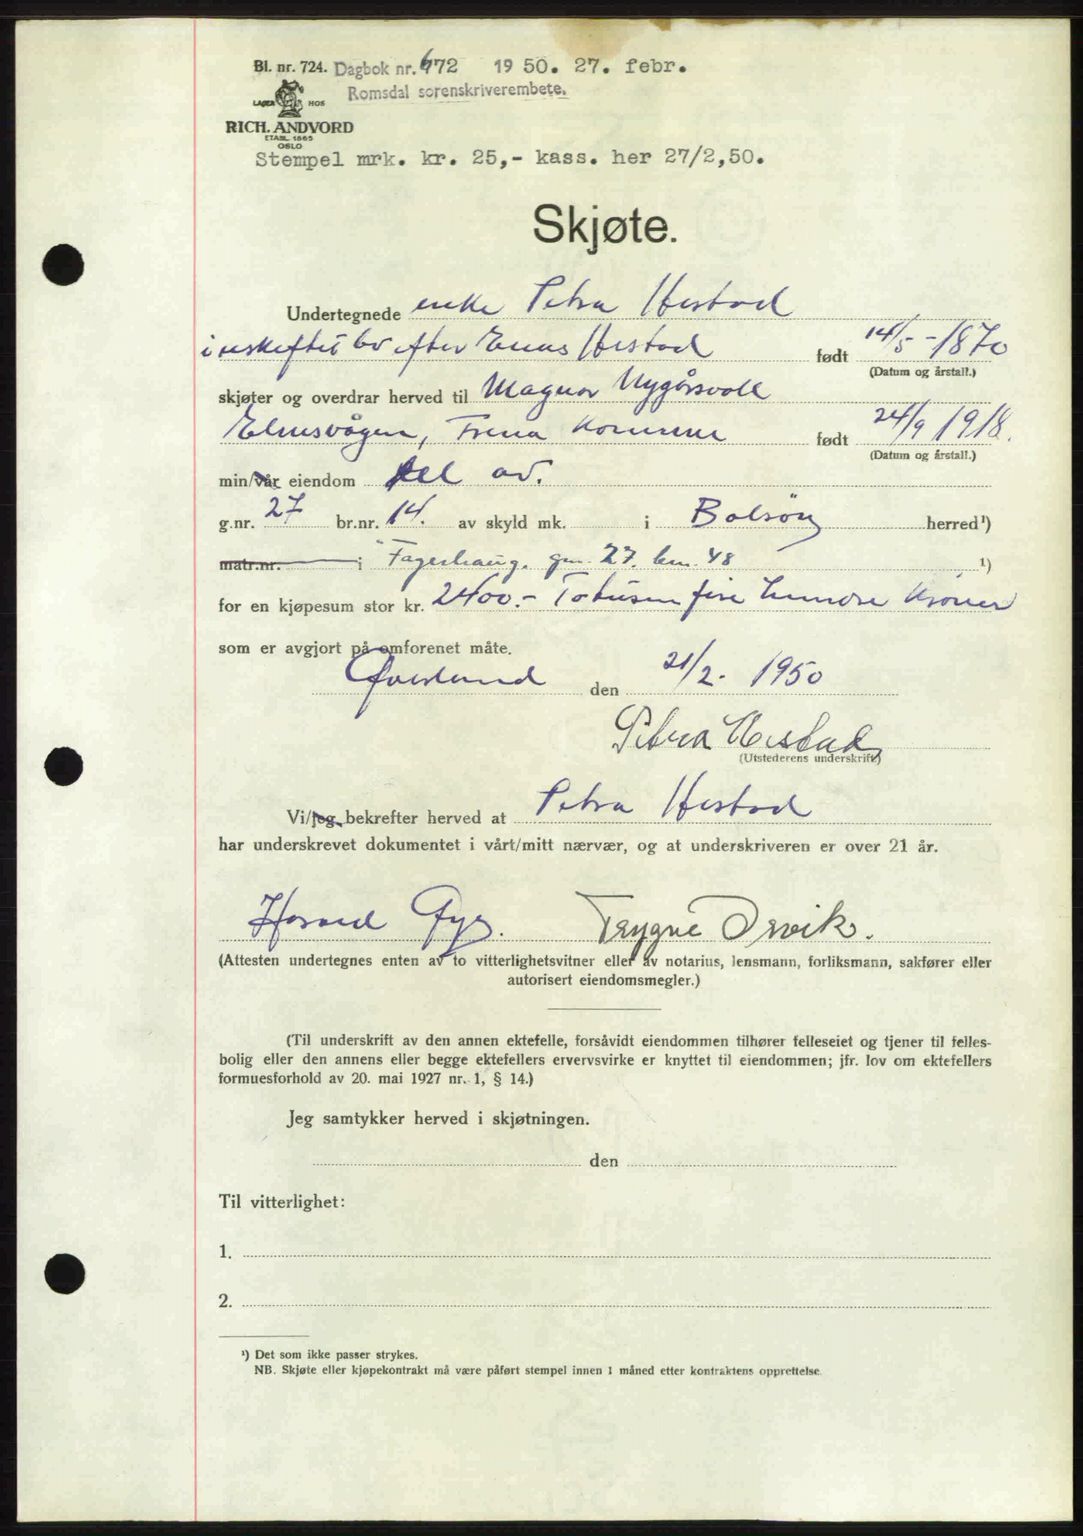 Bl. nr. 724. Dagbok nr. 672 1950. 27. febr.
Romsdal sorenskriverembete.
LAGER HOS
RICH. ANDVORD
ETABL. 1865
OSLO
Stempel mrk. kr. 25,- kass. her 27/2,50.
Skjøte.
Undertegnede enke Petra Hestad
i uskiftet bo efter Enas Hestad født 14/5 - 1870
(Datum og årstall.)
skjøter og overdrar herved til Magnor Nygårsvoll
Elnesvågen, Frena Komune født 24/9 1918.
(Datum og årstall.)
min/vår eiendom del av.
g.nr. 27 br.nr. 14. av skyld mk. i Bolsöy herred¹)
matr.nr. i "Fagerhaug, gnr. 27. bnr. 48 ¹)
for en kjøpesum stor kr. 2400.- Totusen fire hundre Kroner
som er avgjort på omforenet måte.
den 21/2. 1950
Petra Hestad
(Utstederens underskrift)
Vi/jeg bekrefter herved at Petra Hestad
har underskrevet dokumentet i vårt/mitt nærvær, og at underskriveren er over 21 år.
Trygve
(Attesten undertegnes enten av to vitterlighetsvitner eller av notarius, lensmann, forliksmann, sakfører eller
autorisert eiendomsmegler.)
(Til underskrift av den annen ektefelle, forsåvidt eiendommen tilhører felleseiet og tjener til felles-
bolig eller den annens eller begge ektefellers ervervsvirke er knyttet til eiendommen; jfr. lov om ektefellers
formuesforhold av 20. mai 1927 nr. 1, § 14.)
Jeg samtykker herved i skjøtningen.
den
Til vitterlighet:
1.
2.
¹) Det som ikke passer strykes.
NB. Skjøte eller kjøpekontrakt må være påført stempel innen 1 måned etter kontraktens opprettelse.